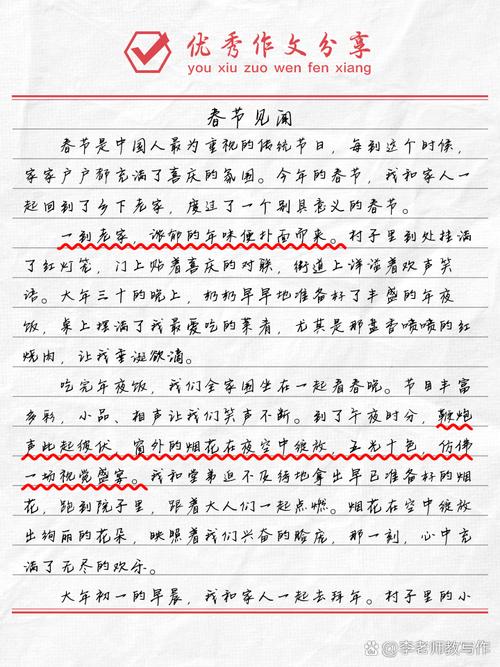 优秀作文分享
you xiu zuo wen fen xiang
春节见闻
春节是中国人最为重视的传统节日，每到这个时候，
家家户户都充满了喜庆的氛围。今年的春节，我和家人一
起回到了乡下老家，度过了一个别具意义的春节。
一到老家，浓郁的年味便扑面而来。村子里到处挂满
了红灯笼，门上贴着喜庆的对联，街道上洋溢着欢声笑
语。大年三十的晚上，奶奶早早地准备好了丰盛的年夜
饭，桌上摆满了我最爱吃的菜肴，尤其是那盘香喷喷的红
烧肉，让我垂涎欲滴。
吃完年夜饭，我们全家围坐在一起看春晚。节目丰富
多彩，小品、相声让我们笑声不断。到了午夜时分，鞭炮
声此起彼伏，窗外的烟花在夜空中绽放，五光十色，仿佛
一场视觉盛宴。我和堂弟迫不及待地拿出早已准备好的烟
花，跑到院子里，跟着大人们一起点燃。烟花在空中绽放
出绚丽的花朵，映照着我们兴奋的脸庞，那一刻，心中充
满了无尽的欢乐。
大年初一的早晨，我和家人一起去拜年。村子里的小
李老师教写作